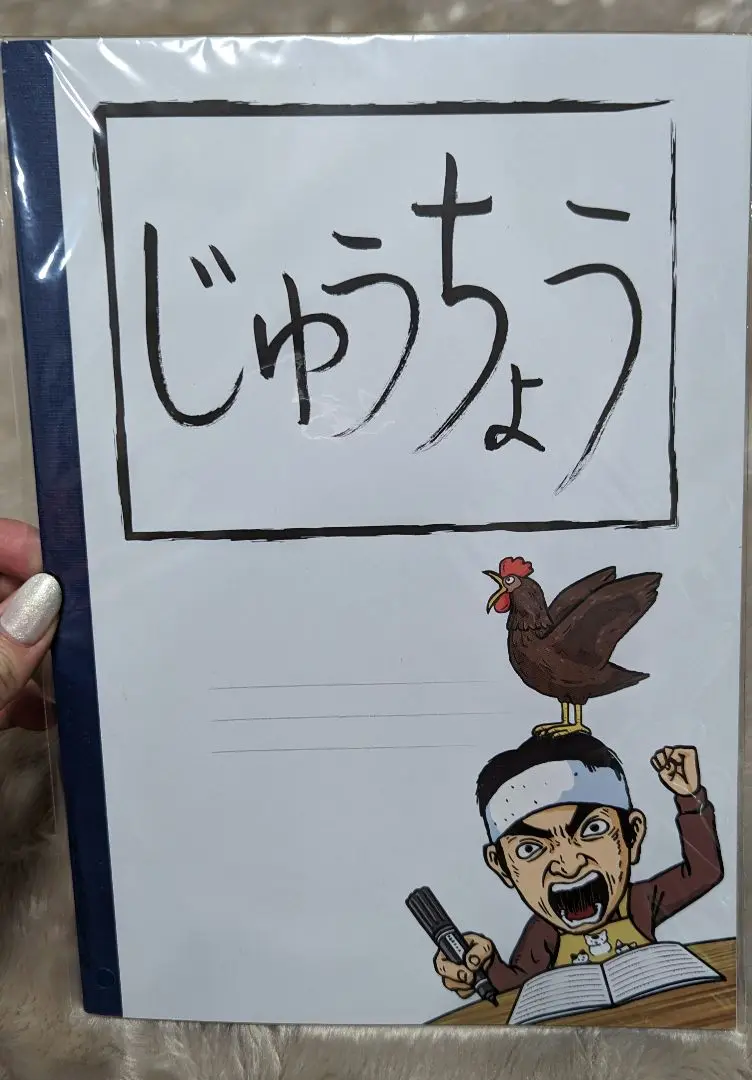 じゅうちょう